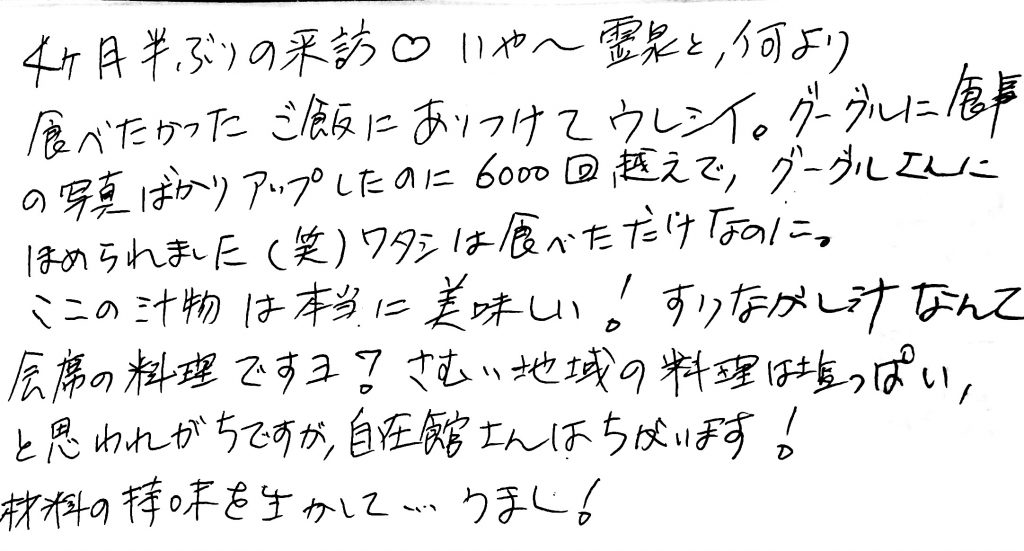 4ヶ月半ぶりの来訪♡ いや〜霊泉と,何より
食べたかったご飯にありつけてウレシイ。グーグルに食事
の写真ばかりアップしたのに6000回越えで,グーグルさんに
ほめられました(笑)ワタシは食べただけなのに。
ここの汁物は本当に美味しい!すりながし汁なんて
会席の料理ですヨ?さむい地域の料理は塩っぱい,
と思われがちですが,自在館さんはちがいます!
材料の持味を生かして…うまし!